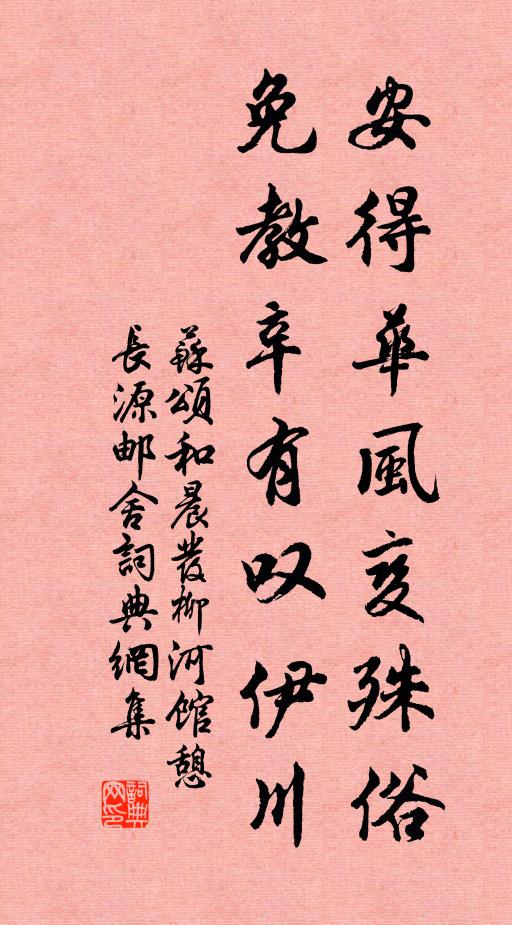 安得華風变殊俗
免教辛有叹伊川
蘇頌和晨發柳河館憩
長源邮舍詞典網集
詞典网印